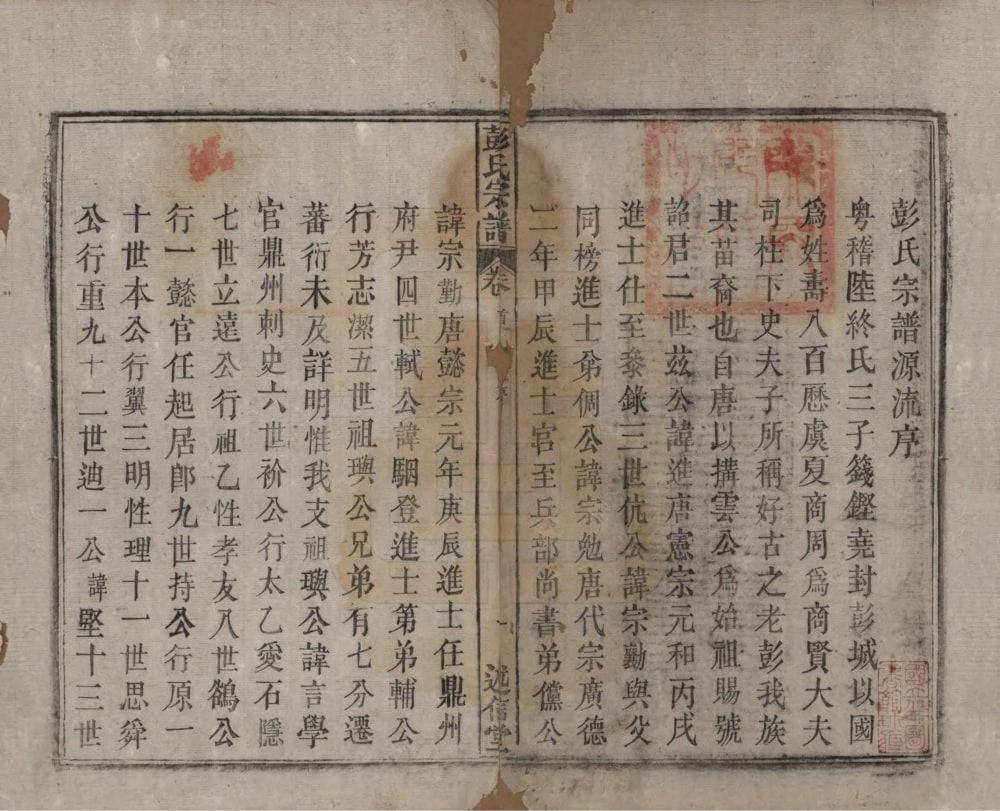 彭氏宗譜源流序
粤稽陸終氏三子籛鏗堯封彭城以國
爲姓壽八百歷虞夏商周爲商賢大夫
司柱下史夫子所稱好古之老彭我族
其苗裔也自唐以搆雲公爲始祖賜號
詔君二世玆公諱進唐憲宗元和丙戌
進士仕至叅錄三世伉公諱宗勳與父
同榜進士弟倜公諱宗勉唐代宗廣德
二年甲辰進士官至兵部尚書弟儻公
彭氏宗譜 卷首 序 一 述信堂
諱宗勤唐懿宗元年庚辰進士任鼎州
府尹四世軾公諱駰登進士第弟輔公
行芳志潔五世祖璵公兄弟有七分遷
蕃衍未及詳明惟我支祖璵公諱言學
官鼎州刺史六世衸公行太乙愛石隱
七世立遠公行祖乙性孝友八世鶴公
行一懿官任起居郎九世持公行原一
十世本公行翼三明性理十一世思舜
公行重九十二世迪一公諱堅十三世